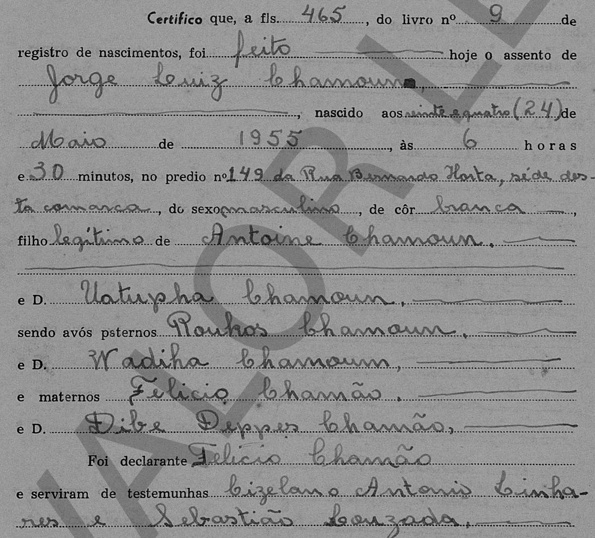 Certifico que, a fls. 465, do livro nº 9 de
registro de nascimentos, foi feito hoje o assento de
Jorge Luiz Chamoun,
, nascido aos vinte e quatro (24) de
Maio de 1955, às 6 horas
e 30 minutos, no predio nº 149 da Rua Bernardo Horta, séde des-
ta comarca, do sexo masculino, de côr branca,
filho legítimo de Antoine Chamoun,
e D. Uatupha Chamoun,
sendo avós paternos Rouhos Chamoun,
e D. Wadiha Chamoum,
e maternos Felicio Chamão,
e D. Dibe Deppes Chamão,
Foi declarante Felicio Chamão
e serviram de testemunhas Cizelano Antonio Linha-
res e Sebastião Louzada,
VALOR LE